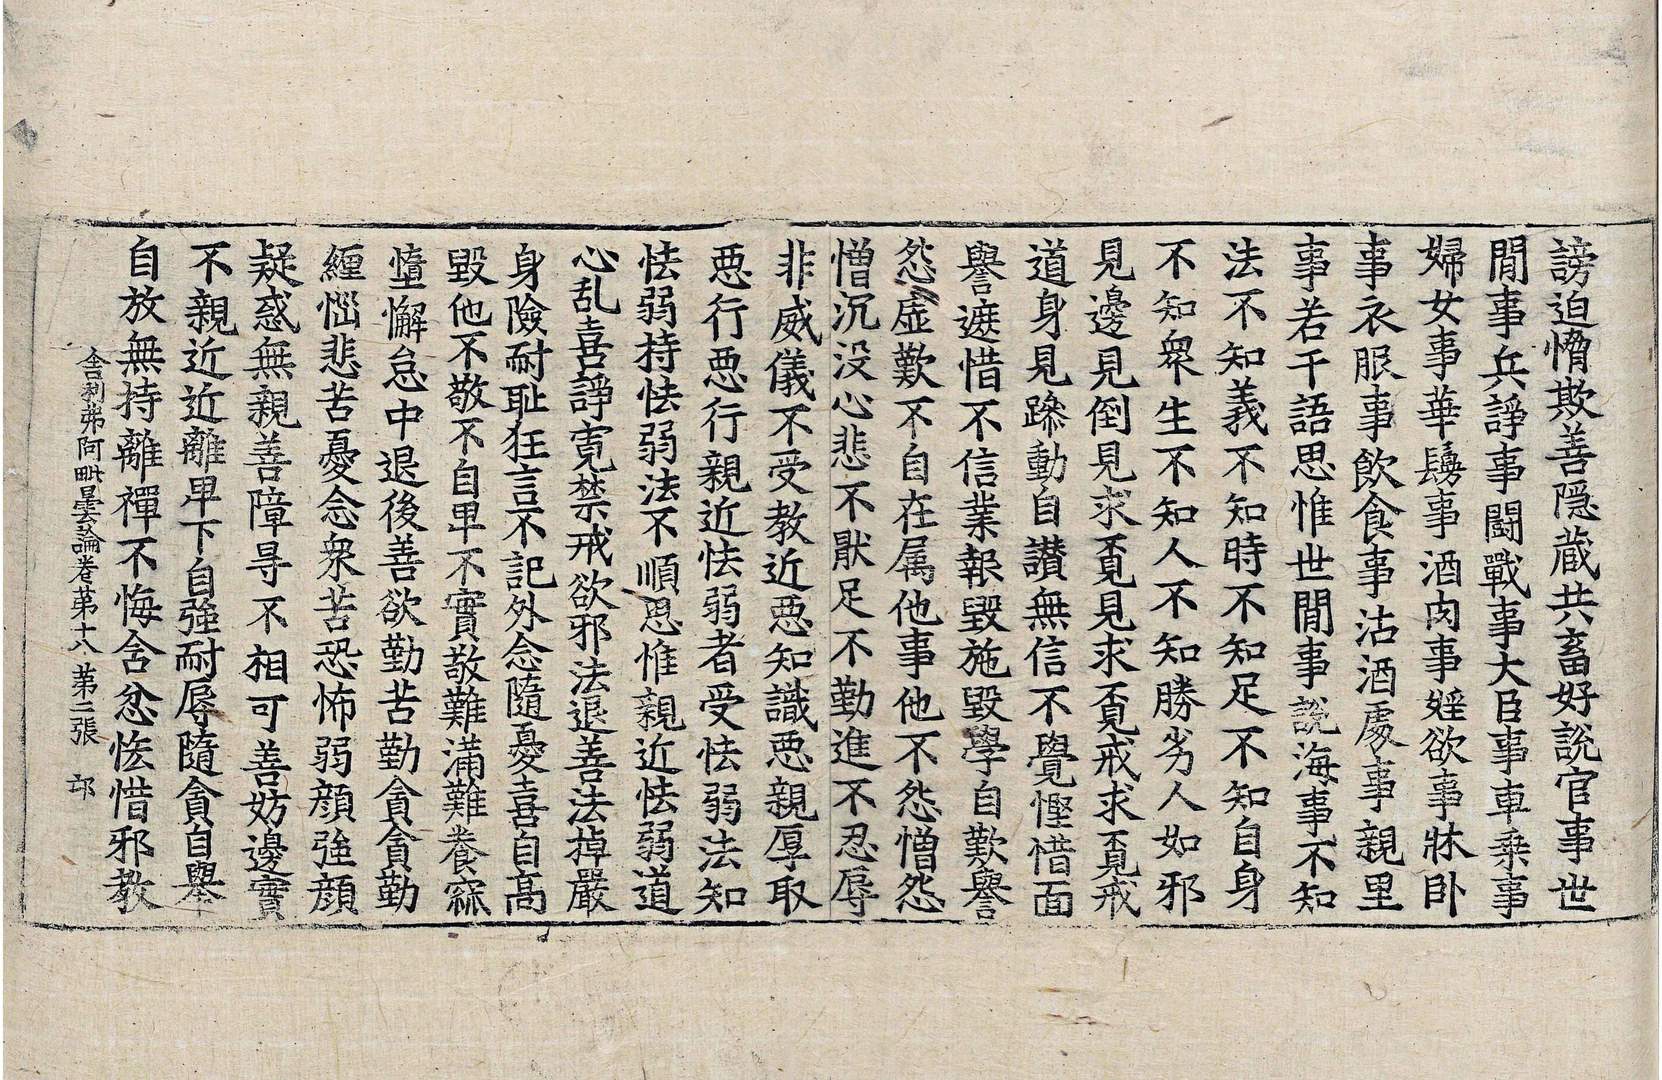 謗迫憎欺善隱蔵共畜好說官事世
間事兵諍事鬪戰事大臣事車乗事
婦女事華鬘事酒肉事婬欲事牀卧
事衣服事飲食事沽酒處事親里
事若干語思惟世間事說海事不知
法不知義不知時不知足不知自身
不知衆生不知人不知勝劣人如邪
見邊見倒見求覔見求覔戒求覔戒
道身見躁動自讃無信不覺慳惜面
譽遮惜不信業報毀施毀學自歎譽
怨虛歎不自在属他事他不怨憎怨
憎沉没心悲不猒足不勤進不忍辱
非威儀不受教近惡知識惡親厚取
惡行惡行親近怯弱者受怯弱法知
怯弱持怯弱法不順思惟親近怯弱道
心乱喜諍寛禁戒欲邪法退善法掉嚴
身險耐耻狂言不記外念隨憂喜自高
毀他不敬不自卑不實敬難滿難養寐
憻懈怠中退後善欲勤苦勤貪貪勤
纒惱悲苦憂念衆苦恐怖弱顔強顔
疑惑無親善障㝵不相可善妨邊實
不親近近離卑下自強耐辱隨貪自舉
自放無持離禪不悔含忿恡惜邪教
舎利弗阿毗曇論卷第十八 第二張 邙